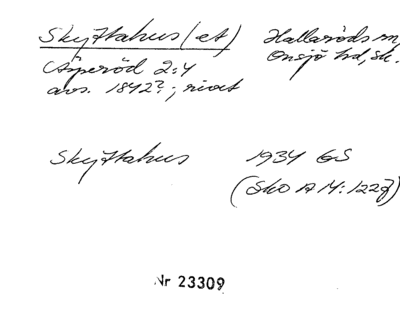 Skyttahus (et) Hallaröds sn,
Äsperöd 2:4 Onsjö hd, Sk.
avs. 1842?; rivet
Skyttahus 1934 GS
(Sko A 14:122
Nr 23309